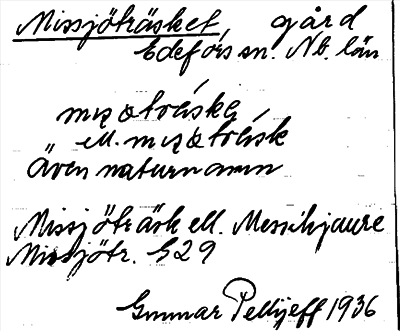 Missjöträsket gård
Edefors sn. Nb. län
även naturnamn
Missjöträsk ell. Messihjaure
Missjötr. S29
Gunnar Pellijeff 1936